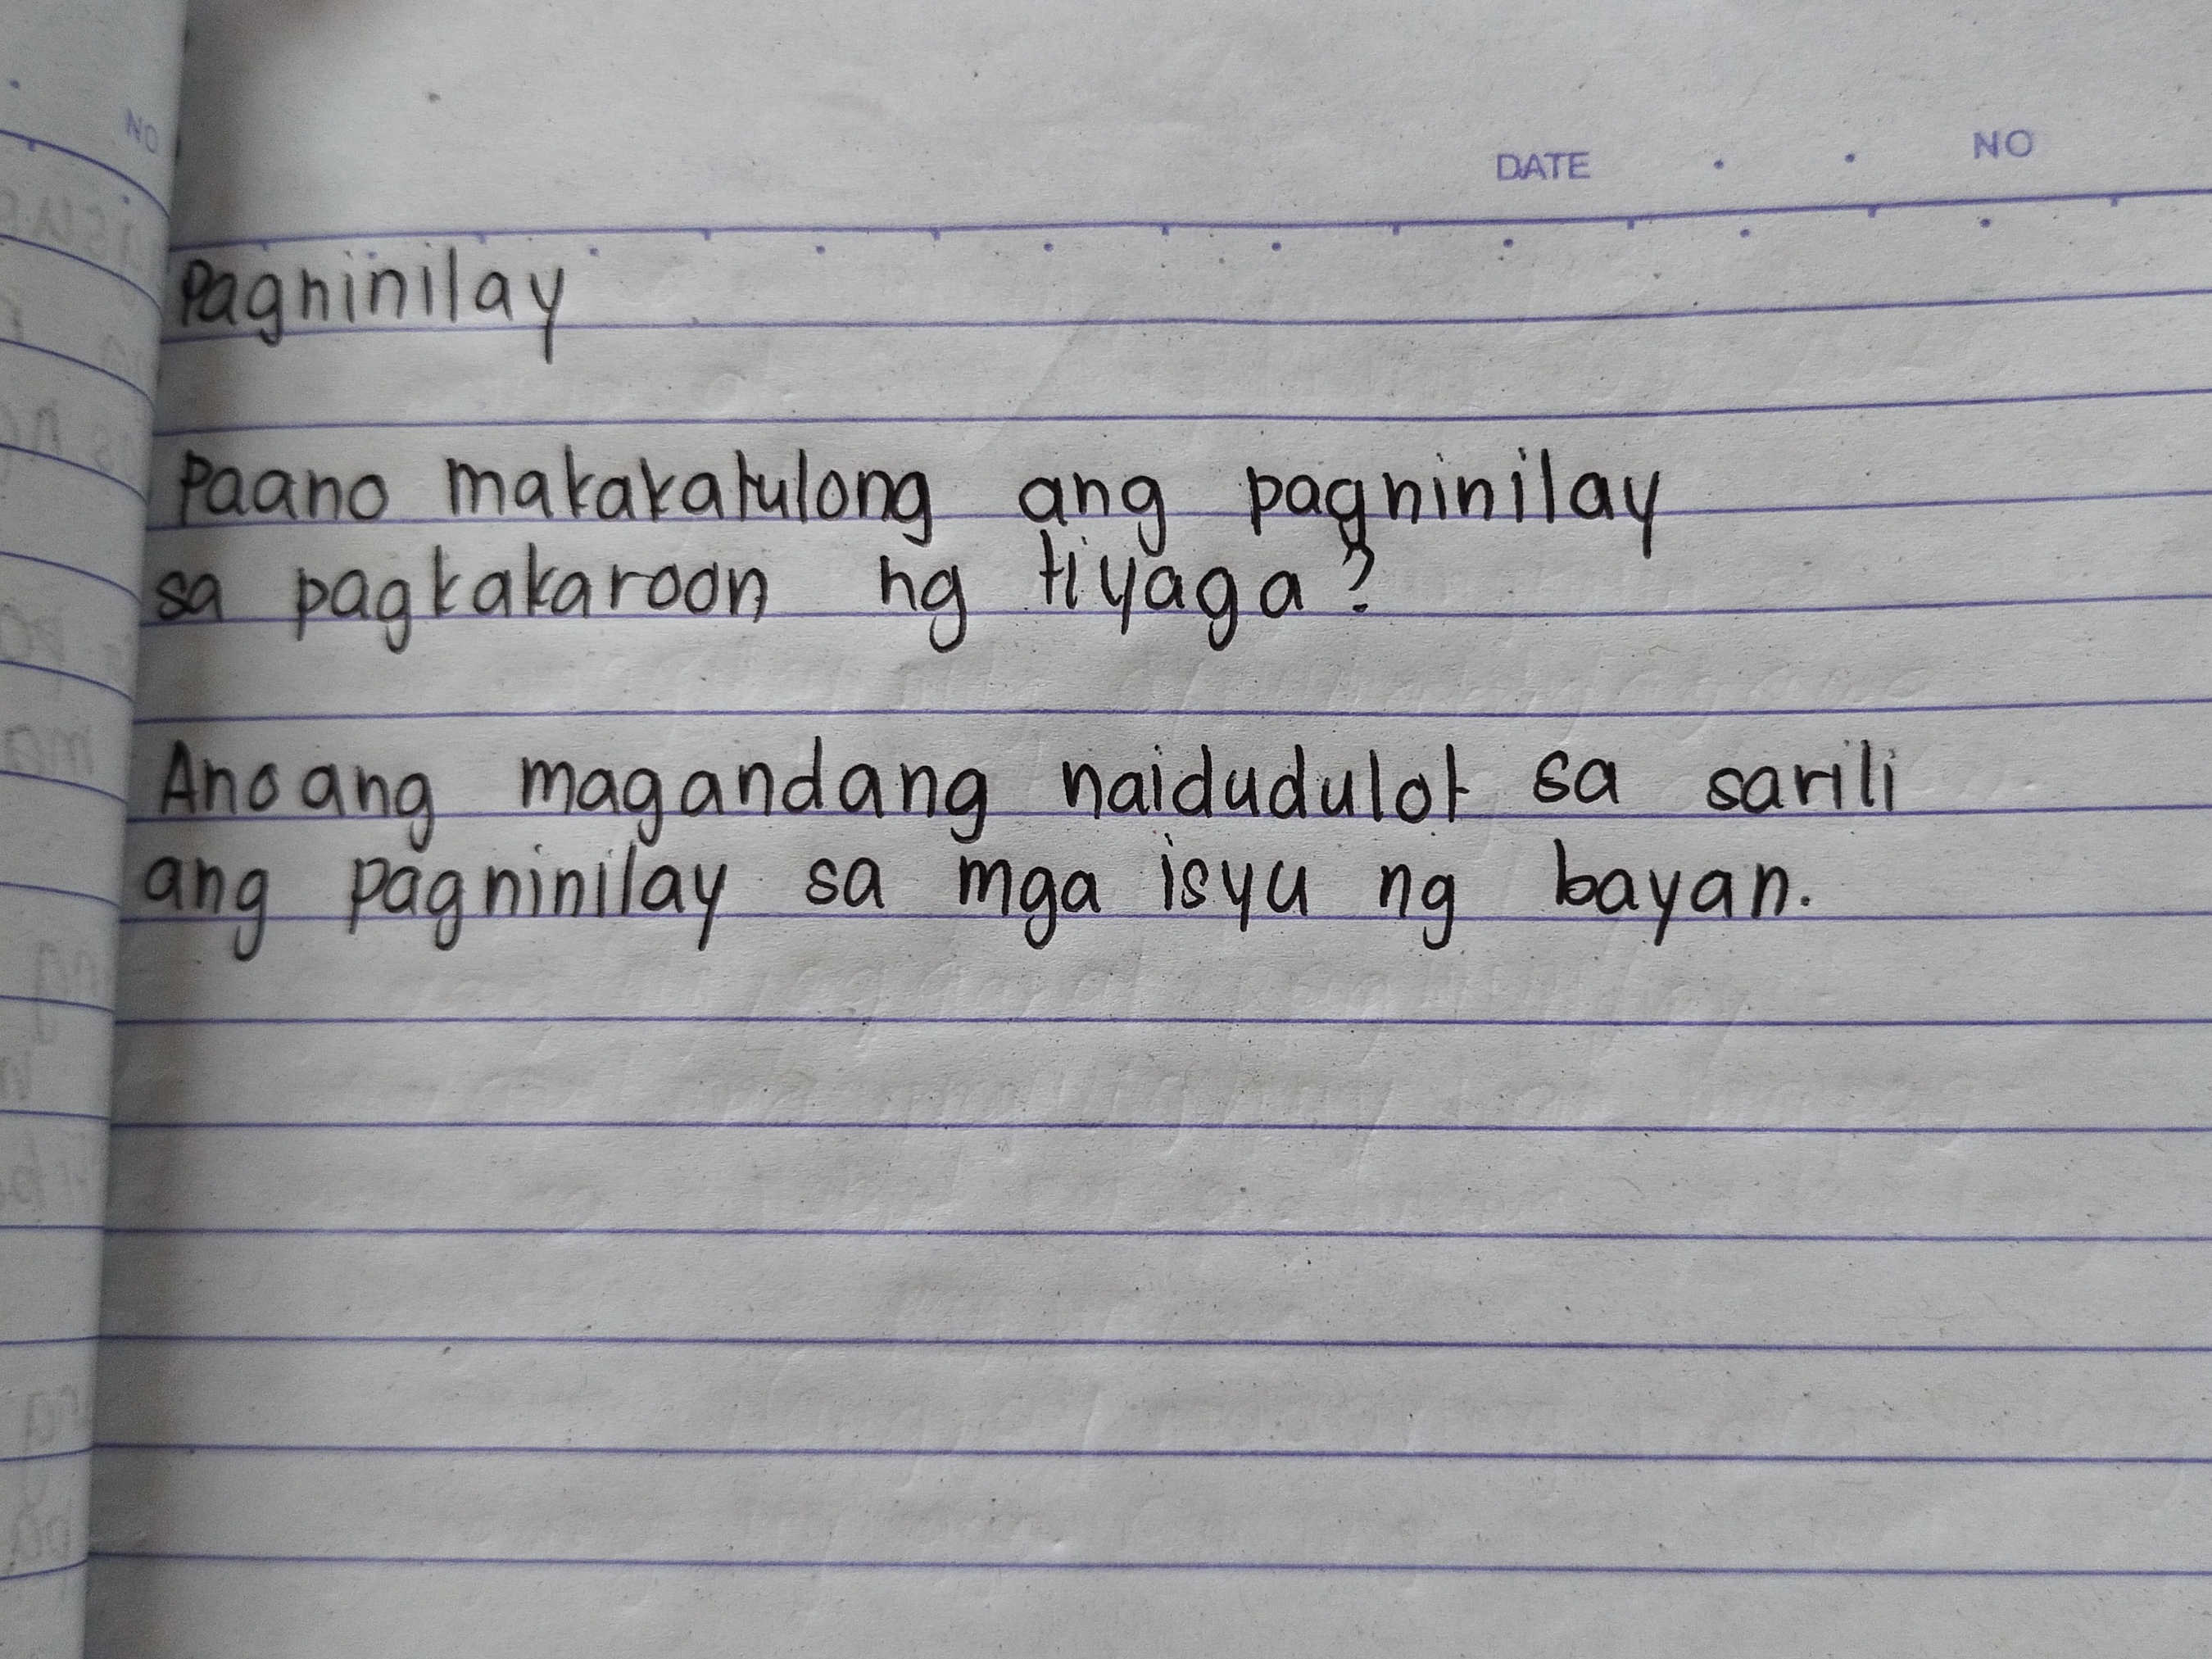 DATE NO
Pagninilay
Paano makakatulong ang pagninilay
sa pagkakaroon ng tiyaga?
Ano ang magandang naidudulot sa sarili
ang pagninilay sa mga isyu ng bayan.